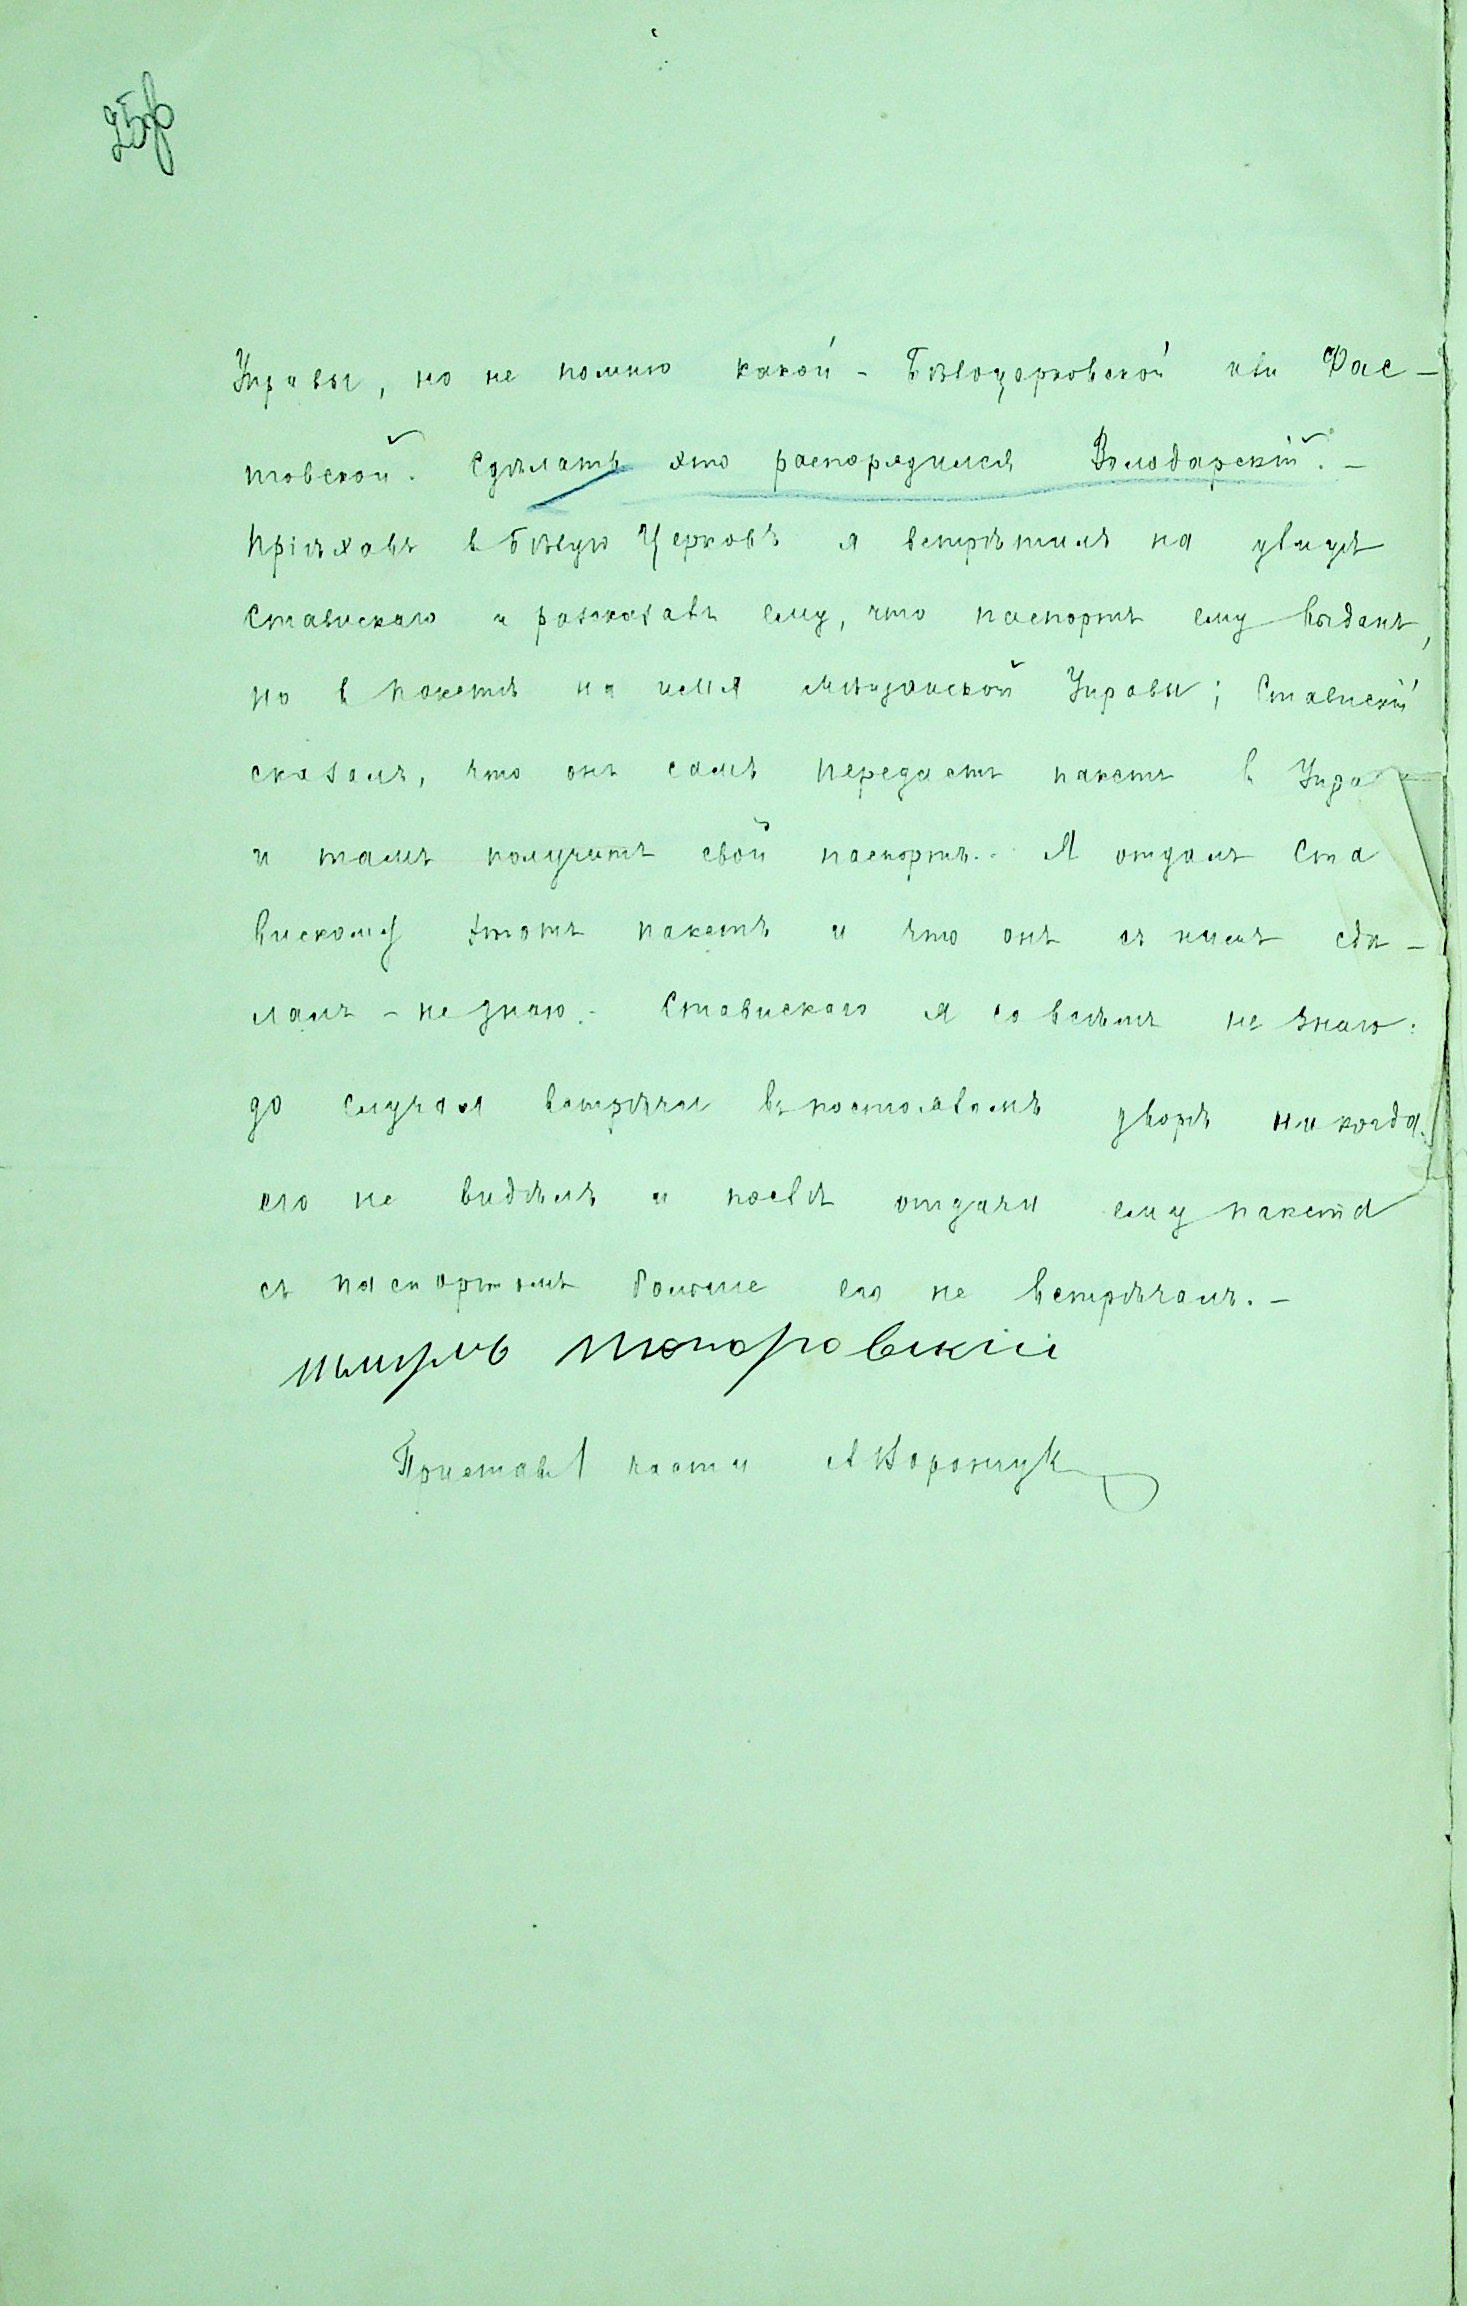 Управы, но не помню какой - Бѣлоцерковской или Фас-
товской. Сдѣлать это распорядился Володарскій. -
Пріѣхавъ в Бѣлую Церковь я встрѣтилъ на улицѣ
Ставискаго и разсказавъ ему, что паспортъ ему выданъ,
но в пакетѣ на имя мѣщанской Управы; Ставискій
сказалъ, что онъ самъ передастъ пакетъ в Управ
и тамъ получитъ свой паспортъ. - Я отдалъ Ста
вискому этотъ пакетъ и что онъ съ нимъ сдѣ-
лалъ - не знаю. - Ставискаго я совсѣмъ не знаю:
до случая встрѣчи въ постояломъ дворѣ никогда
его не видѣлъ и послѣ отдачи ему пакета
съ паспортомъ больше его не встрѣчалъ. -
Топоровскій
Приставъ 1 части А Ворончук